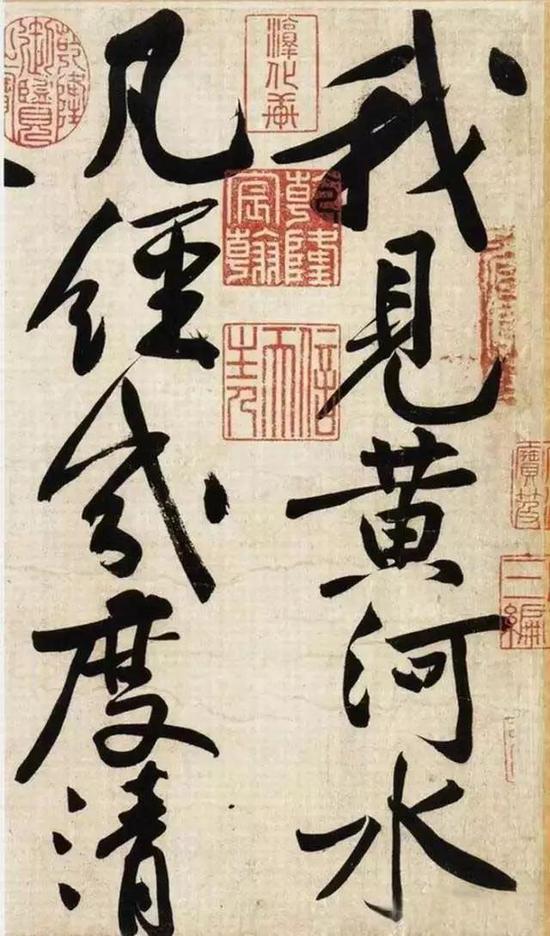 我見黃河水
凡經幾度清
淳化軒
乾隆宸翰
信天主人
乾隆御覽之寶
寶笈
三編